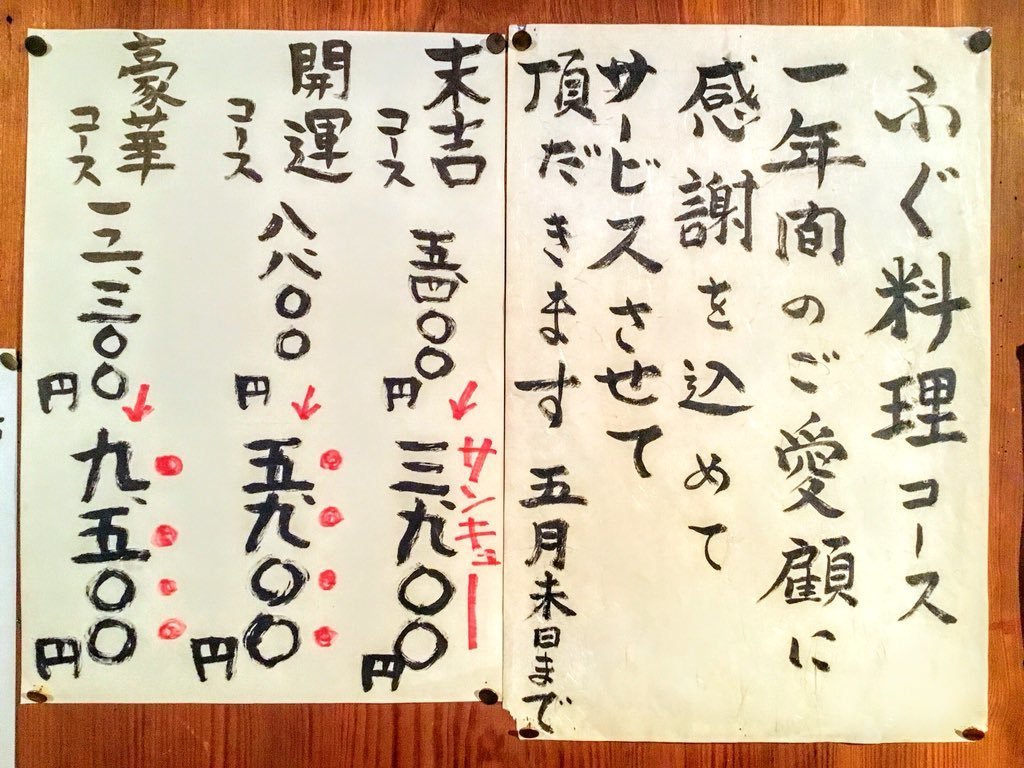 ふぐ料理コース
一年間のご愛顧に
感謝を込めて
サービスさせて
頂だきます 五月末日まで
末吉コース 五、四〇〇円→三、九〇〇円
サンキュー
開運コース 八、八〇〇円→五、九〇〇円
豪華コース 一二、三〇〇円→九、五〇〇円